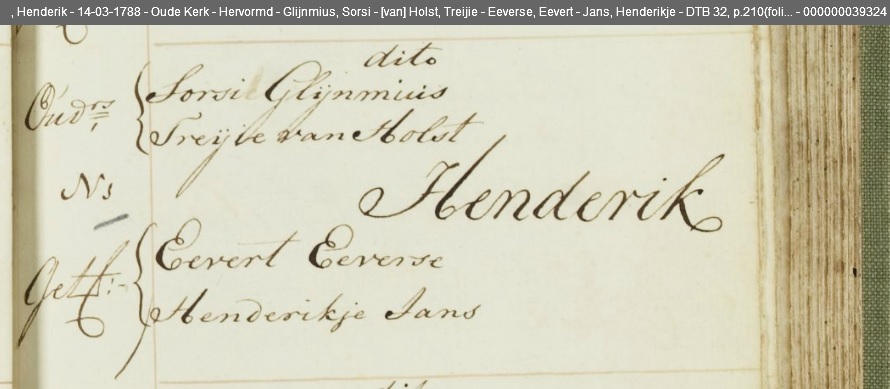 , Henderik - 14-03-1788 - Oude Kerk - Hervormd - Glijnmius, Sorsi - [van] Holst, Treijie - Eeverse, Eevert - Jans, Henderikje - DTB 32, p.210(foli... - 000000039324
dito
Oudrs Sorsi Glijnmius
Treijie van Holst
Ns Henderik
Gett:- Eevert Eeverse
Henderikje Jans